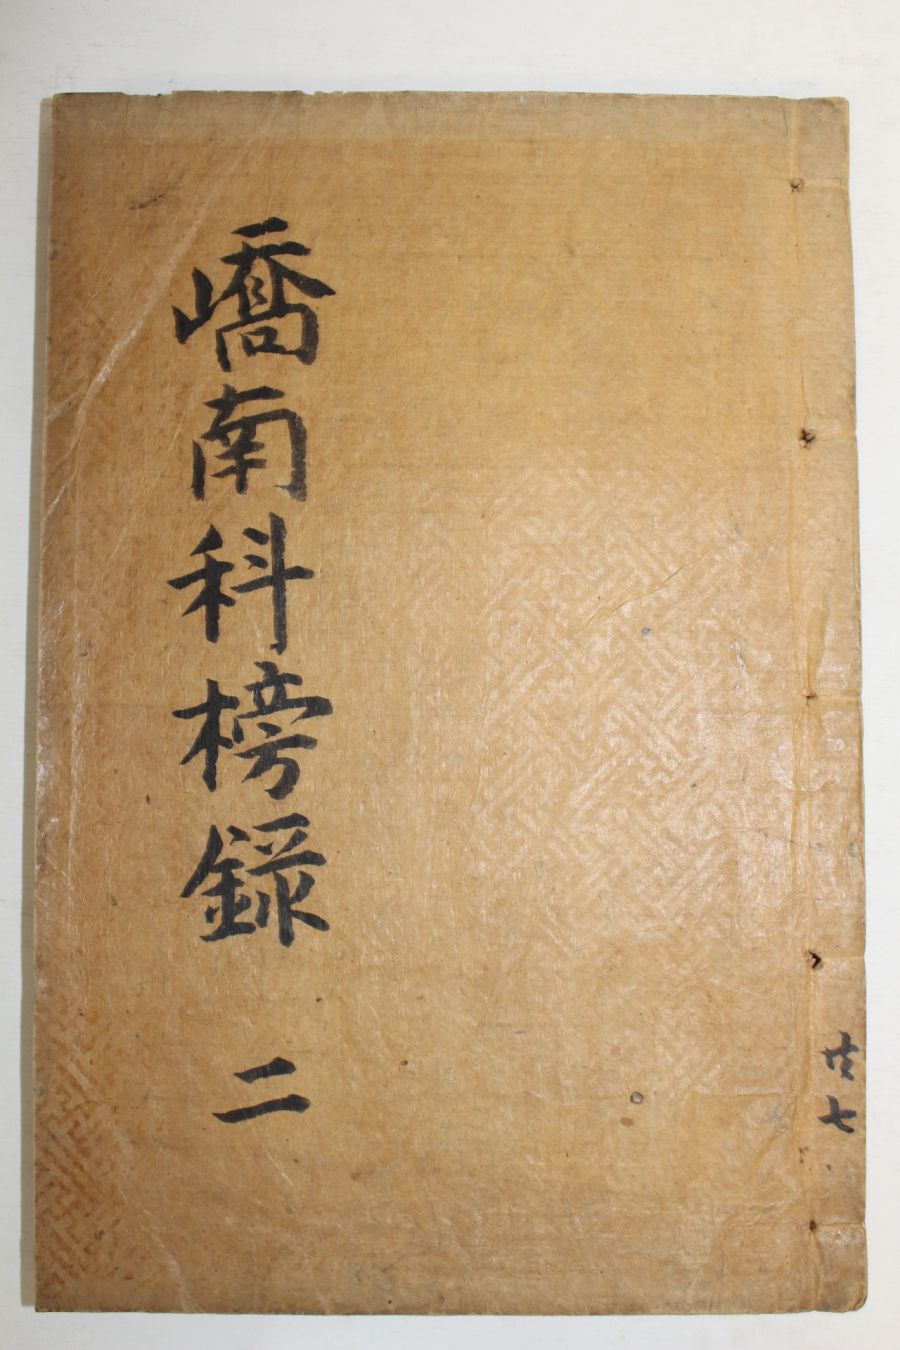 嶠南科榜錄 二
共七